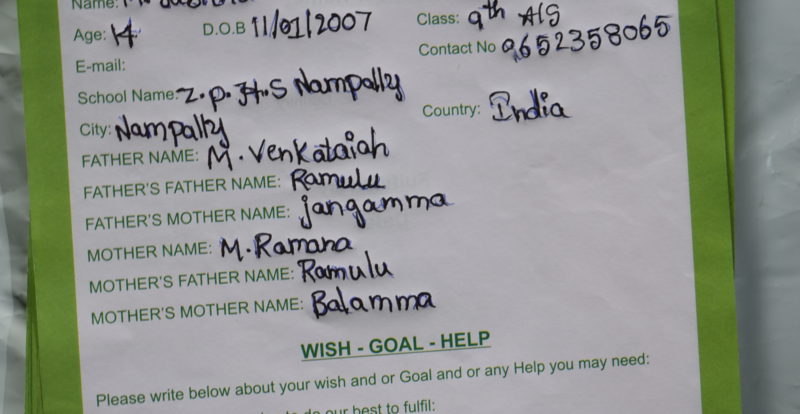 Name: M.
Age: 14 D.O.B 11/01/2007 Class: 9th A/S
E-mail: Contact No 9652358065
School Name: Z.P.H.S Nampally
City: Nampally Country: India
FATHER NAME: M. Venkataiah
FATHER'S FATHER NAME: Ramulu
FATHER'S MOTHER NAME: jangamma
MOTHER NAME: M. Ramana
MOTHER'S FATHER NAME: Ramulu
MOTHER'S MOTHER NAME: Balamma
WISH - GOAL - HELP
Please write below about your wish and or Goal and or any Help you may need:
do our best to fulfil: